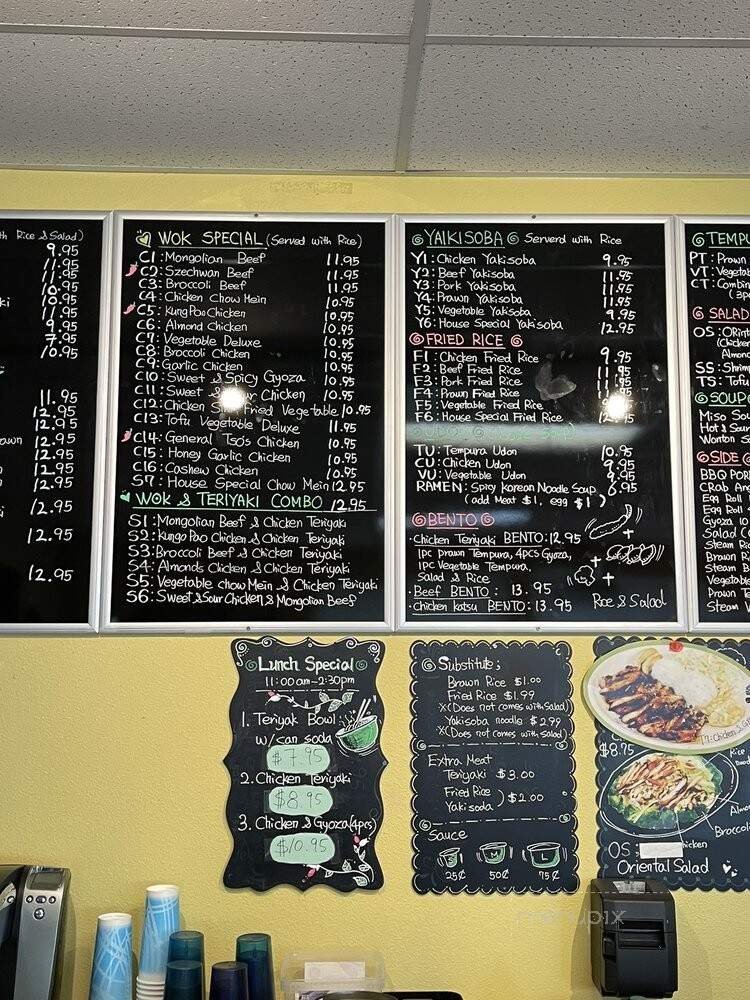 th Rice & Salad)
9.95
11.95
11.95
10.95
10.95
11.95
9.95
7.95
10.95
11.95
12.95
12.95
12.95
12.95
12.95
12.95
12.95
12.95
WOK SPECIAL (Served with Rice)
C1: Mongolian Beef 11.95
C2: Szechwan Beef 11.95
C3: Broccoli Beef 11.95
C4: Chicken Chow Mein 10.95
C5: Kung Pao Chicken 10.95
C6: Almond Chicken 10.95
C7: Vegetable Deluxe 10.95
C8: Broccoli Chicken 10.95
C9: Garlic Chicken 10.95
C10: Sweet & Spicy Gyoza 10.95
C11: Sweet & Sour Chicken 10.95
C12: Chicken Stir Fried Vegetable 10.95
C13: Tofu Vegetable Deluxe 11.95
C14: General Tso's Chicken 10.95
C15: Honey Garlic Chicken 10.95
C16: Cashew Chicken 10.95
S7: House Special Chow Mein 12.95
WOK & TERIYAKI COMBO 12.95
S1: Mongolian Beef & Chicken Teriyaki
S2: Kungo Pao Chicken & Chicken Teriyaki
S3: Broccoli Beef & Chicken Teriyaki
S4: Almonds Chicken & Chicken Teriyaki
S5: Vegetable chow Mein & Chicken Teriyaki
S6: Sweet & Sour Chicken & Mongolian Beef
YAIKISOBA Serverd with Rice
Y1: Chicken Yakisoba 9.95
Y2: Beef Yakisoba 11.95
Y3: Pork Yakisoba 11.95
Y4: Prawn Yakisoba 11.95
Y5: Vegetable Yakisoba 9.95
Y6: House Special Yakisoba 12.95
FRIED RICE
F1: Chicken Fried Rice 9.95
F2: Beef Fried Rice 11.95
F3: Pork Fried Rice
F4: Prawn Fried Rice
F5: Vegetable Fried Rice
F6: House Special Fried Rice
TU: Tempura Udon 10.95
CU: Chicken Udon 9.95
VU: Vegetable Udon 9.95
RAMEN: Spicy Korean Noodle Soup 6.95
(add Meat $1, egg $1)
BENTO
· Chicken Teriyaki BENTO: 12.95
1pc prawn Tempura, 4pcs Gyoza,
1pc Vegetable Tempura,
Salad & Rice
· Beef BENTO: 13.95
· Chicken katsu BENTO: 13.95
Rice & Salad
TEMPU
PT: Prawn
VT: Vegetab
CT: Combin
(3pc
SALAD
OS: ORint
(Chicken
Almon
SS: Shrim
TS: Tofu
SOUP
Miso So
Hot & Sour
Wonton S
SIDE
BBQ POR
Crab An
Egg Roll
Egg Roll
Gyoza 10
Salad (
Steam Ri
Brown R
Steam
Vegetabl
Prawn T
Steam V
Lunch Special
11:00am-2:30pm
1. Teriyak Bowl
w/can soda
$7.95
2. Chicken Teriyaki
$8.95
3. Chicken & Gyoza(4pcs)
$10.95
Substitute;
Brown Rice $1.00
Fried Rice $1.99
※(Does not comes with Salad)
Yakisoba noodle $2.99
※(Does not comes with Salad)
Extra Meat
Teriyaki $3.00
Fried Rice
Yakisoba ) $2.00
Sauce
S M L
25¢ 50¢ 75¢
$8.75
Almo
Broccoli
OS; icken
Oriental Salad
menupix